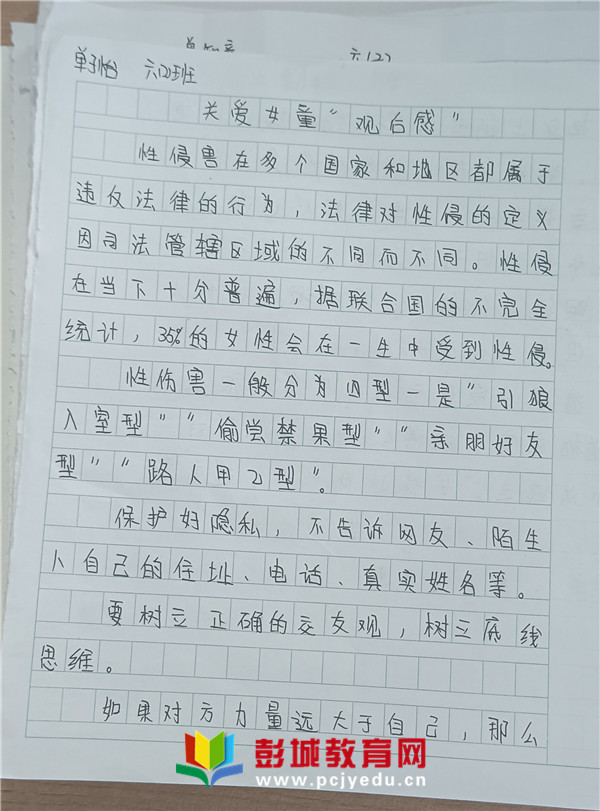 六(2)
六(2)班
关爱女童"观后感"
性侵害在多个国家和地区都属于
违反法律的行为，法律对性侵的定义
因司法管辖区域的不同而不同。性侵
在当下十分普遍，据联合国的不完全
统计，35%的女性会在一生中受到性侵。
性伤害一般分为四型一是"引狼
入室型""偷尝禁果型""亲朋好友
型""路人甲乙型"。
保护好隐私，不告诉网友、陌生
人自己的住址、电话、真实姓名等。
要树立正确的交友观，树立底线
思维。
如果对方力量远大于自己，那么
彭城教育网
www.pcjyedu.cn